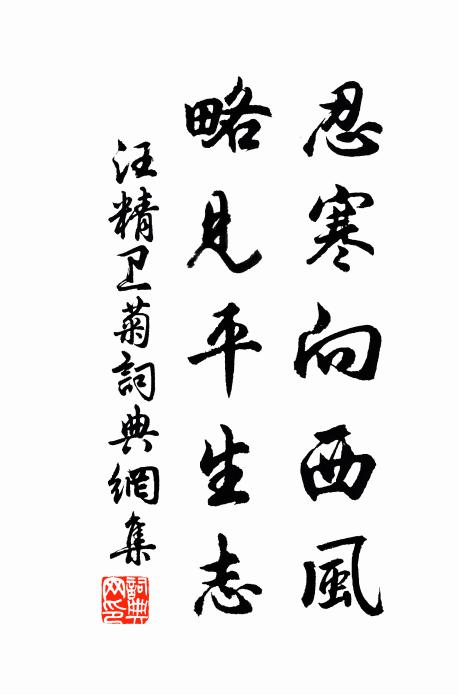 忍寒向西風
略見平生志
汪精卫菊詞典網集
詞典网印